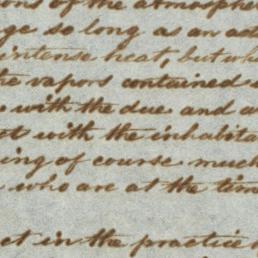 ons of the atmosphe
ge so long as an ad
intense heat, but wh
the vapors contained
with the due and a
t with the inhabita
ing of course much
who are at the tim
ct in the practice